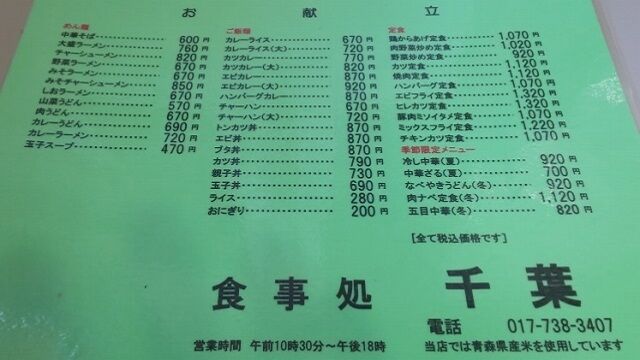 お献立
めん類
中華そば 600円
大盛ラーメン 760円
チャーシューメン 820円
野菜ラーメン 670円
みそラーメン 670円
みそチャーシューメン 850円
しおラーメン 670円
山菜うどん 570円
肉うどん 670円
カレーうどん 690円
カレーラーメン 720円
玉子スープ 470円
ご飯類
カレーライス 670円
カレーライス(大) 720円
カツカレー 770円
カツカレー(大) 820円
エビカレー 870円
エビカレー(大) 920円
ハンバーグカレー 870円
チャーハン 670円
チャーハン(大) 720円
トンカツ丼 870円
エビ丼 870円
ブタ丼 870円
カツ丼 790円
親子丼 730円
玉子丼 690円
ライス 280円
おにぎり 200円
定食
鶏からあげ定食 1,070円
肉野菜炒め定食 1,020円
野菜炒め定食 920円
カツ定食 1,120円
焼肉定食 1,120円
ハンバーグ定食 1,070円
エビフライ定食 1,320円
ヒレカツ定食 1,320円
豚肉ミソイタメ定食 1,070円
ミックスフライ定食 1,220円
チキンカツ定食 1,070円
季節限定メニュー
冷し中華(夏) 920円
中華ざる(夏) 700円
なべやきうどん(冬) 920円
肉ナベ定食(冬) 1,120円
五目中華(冬) 820円
[全て税込価格です]
食事処 千葉
電話 017-738-3407
営業時間 午前10時30分〜午後18時
当店では青森県産米を使用しています